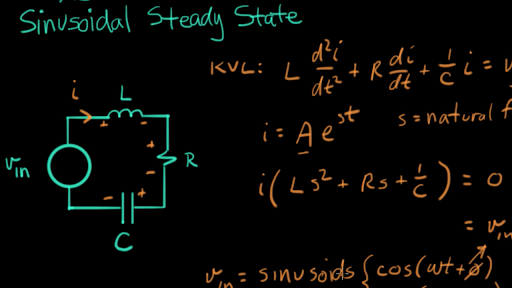 Sinusoidal Steady State
KVL: L d²i/dt² + R di/dt + 1/C i =
i
L
+ -
i = A e^st
s = natural
+
R
-
v_in
i(Ls² + Rs + 1/C) = 0
- +
C
= v_in
v_in = sinusoids { cos(ωt + ø)